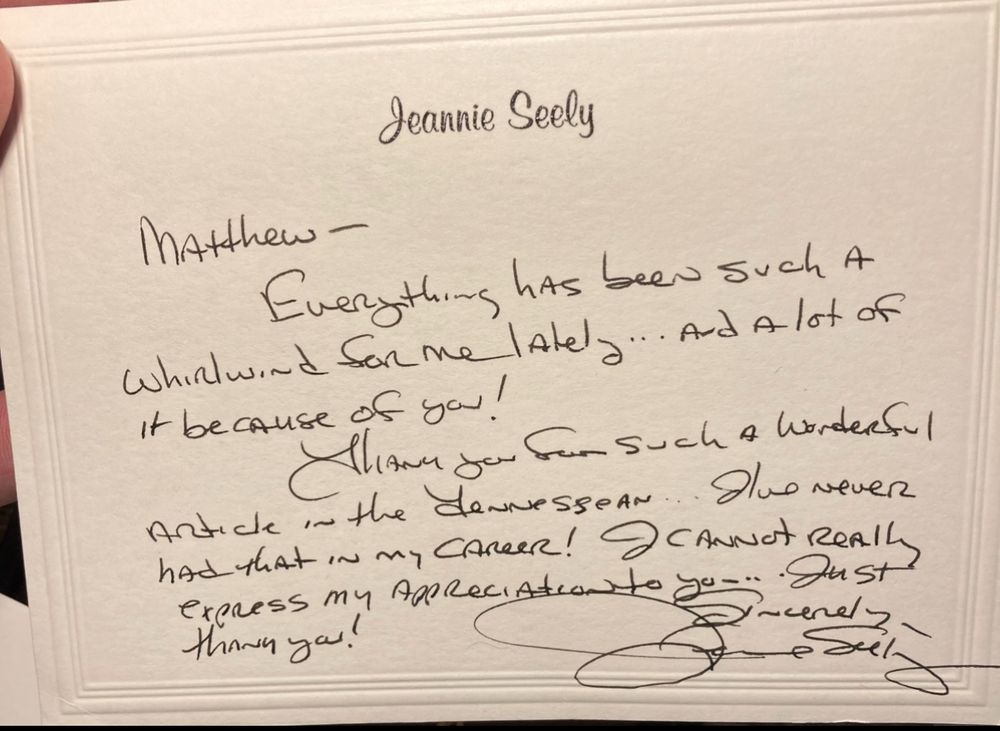 Jeannie Seely
Matthew —
Everything has been such a
whirlwind for me lately... and a lot of
it because of you!
Thank you for such a wonderful
article in the Tennessean... I've never
had that in my career! I cannot really
express my appreciation to you... Just
thank you!
Sincerely,
Jeannie Seely